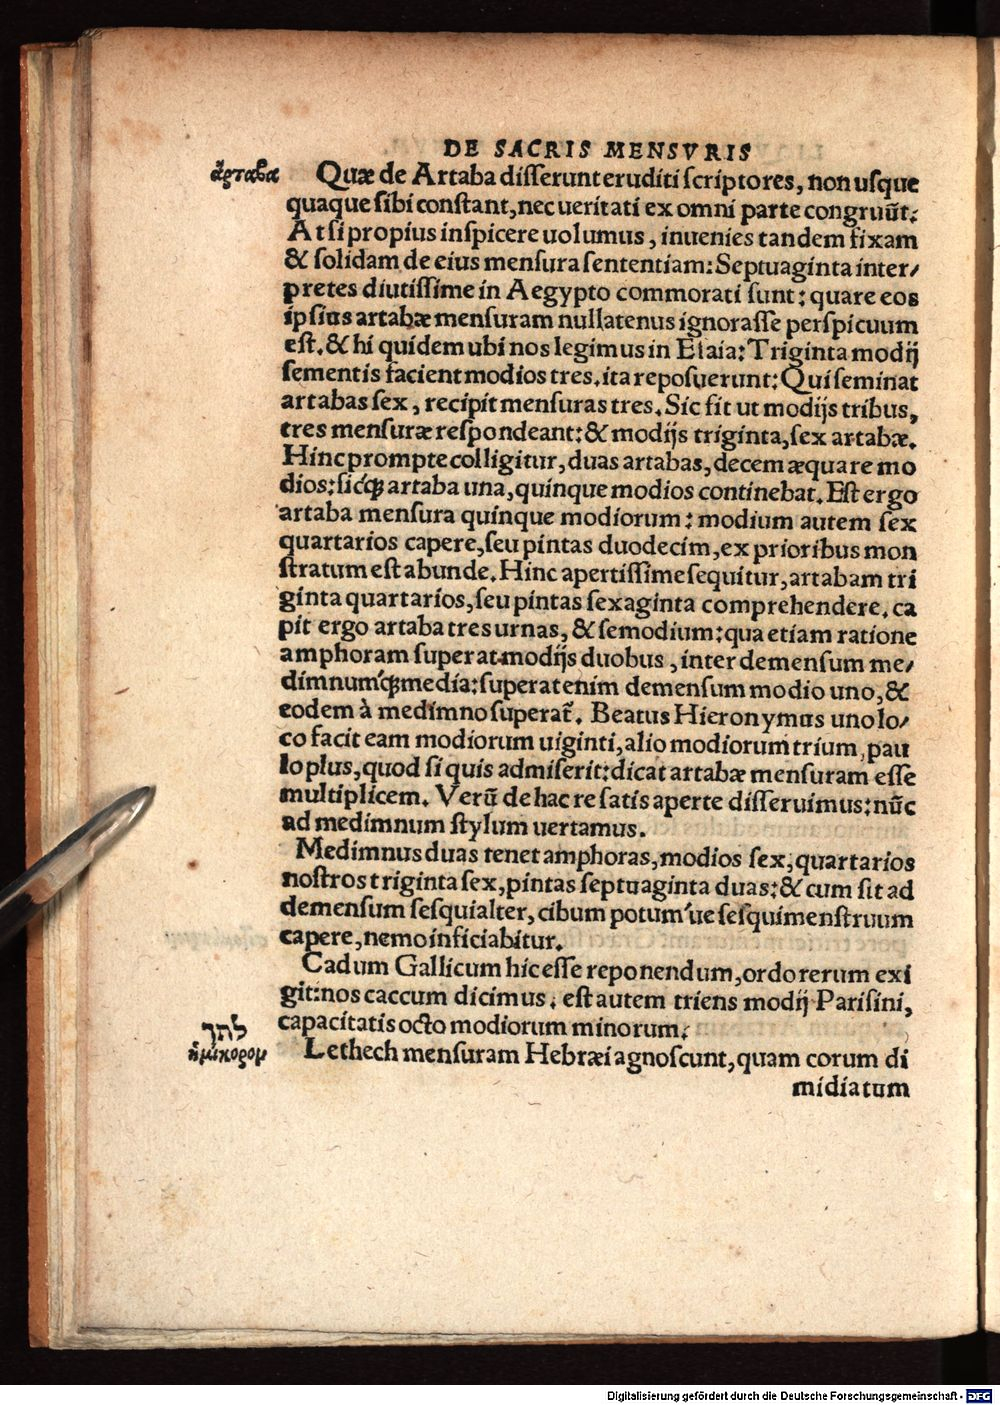 DE SACRIS MENSVRIS
ἄρταβα
Quæ de Artaba disserunt eruditi scriptores, non usque
quaque sibi constant, nec ueritati ex omni parte congruũt:
At si propius inspicere uolumus, inuenies tandem fixam
& solidam de eius mensura sententiam: Septuaginta inter/
pretes diutissime in Aegypto commorati sunt: quare eos
ipsius artabæ mensuram nullatenus ignorasse perspicuum
est. & hi quidem ubi nos legimus in Esaia: Triginta modij
sementis facient modios tres. ita reposuerunt: Qui seminat
artabas sex, recipit mensuras tres. Sic fit ut modijs tribus,
tres mensuræ respondeant: & modijs triginta, sex artabæ.
Hinc prompte colligitur, duas artabas, decem æquare mo
dios: sicq́; artaba una, quinque modios continebat. Est ergo
artaba mensura quinque modiorum: modium autem sex
quartarios capere, seu pintas duodecim, ex prioribus mon
stratum est abunde. Hinc apertissime sequitur, artabam tri
ginta quartarios, seu pintas sexaginta comprehendere. ca
pit ergo artaba tres urnas, & semodium: qua etiam ratione
amphoram superat modijs duobus, inter demensum me/
dimnumq́; media: superat enim demensum modio uno, &
eodem à medimno superat̃. Beatus Hieronymus uno lo/
co facit eam modiorum uiginti, alio modiorum trium, pau
lo plus, quod si quis admiserit: dicat artabæ mensuram esse
multiplicem. Verũ de hac re satis aperte disseruimus: nũc
ad medimnum stylum uertamus.
Medimnus duas tenet amphoras, modios sex, quartarios
nostros triginta sex, pintas septuaginta duas: & cum sit ad
demensum sesquialter, cibum potum'ue sesquimenstruum
capere, nemo inficiabitur.
Cadum Gallicum hic esse reponendum, ordo rerum exi
git: nos caccum dicimus. est autem triens modij Parisini,
capacitatis octo modiorum minorum.
לתך
ἡμίκορομ
Lethech mensuram Hebræi agnoscunt, quam corum di
midiatum
Digitalisierung gefördert durch die Deutsche Forschungsgemeinschaft - DFG